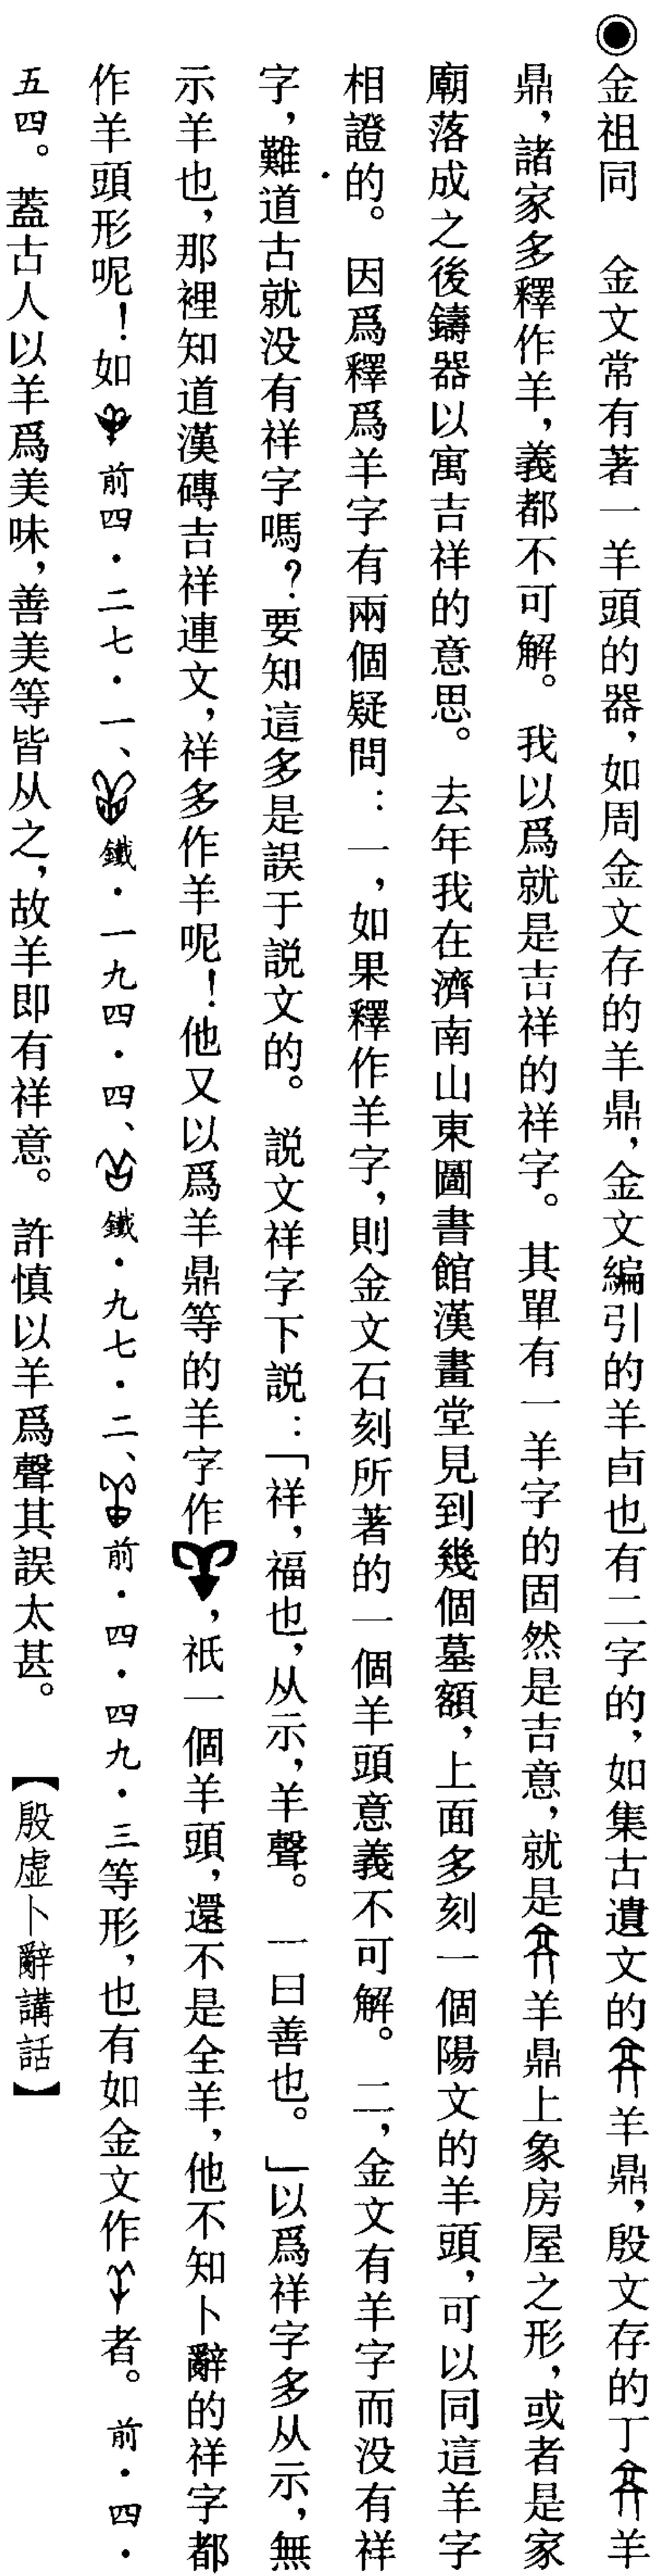 ◉金祖同　金文常有著一羊頭的器，如周金文存的羊鼎，金文編引的羊卣也有二字的，如集古遺文的羊鼎，殷文存的丁羊
鼎，諸家多釋作羊，義都不可解。我以爲就是吉祥的祥字。其單有一羊字的固然是吉意，就是羊鼎上象房屋之形，或者是家
廟落成之後鑄器以寓吉祥的意思。去年我在濟南山東圖書館漢畫堂見到幾個墓額，上面多刻一個陽文的羊頭，可以同這羊字
相證的。因爲釋爲羊字有兩個疑問：一，如果釋作羊字，則金文石刻所著的一個羊頭意義不可解。二，金文有羊字而没有祥
字，難道古就没有祥字嗎？要知這多是誤于説文的。説文祥字下説：「祥，福也，从示，羊聲。一曰善也。」以爲祥字多从示，無
示羊也，那裡知道漢磚吉祥連文，祥多作羊呢！他又以爲羊鼎等的羊字作，祇一個羊頭，還不是全羊，他不知卜辭的祥字都
作羊頭形呢！如前四·二七·一、鐵·一九四·四、鐵·九七·二、前·四·四九·三等形，也有如金文作者。前·四·
五四。蓋古人以羊爲美味，善美等皆从之，故羊即有祥意。許慎以羊爲聲其誤太甚。【殷虛卜辭講話】